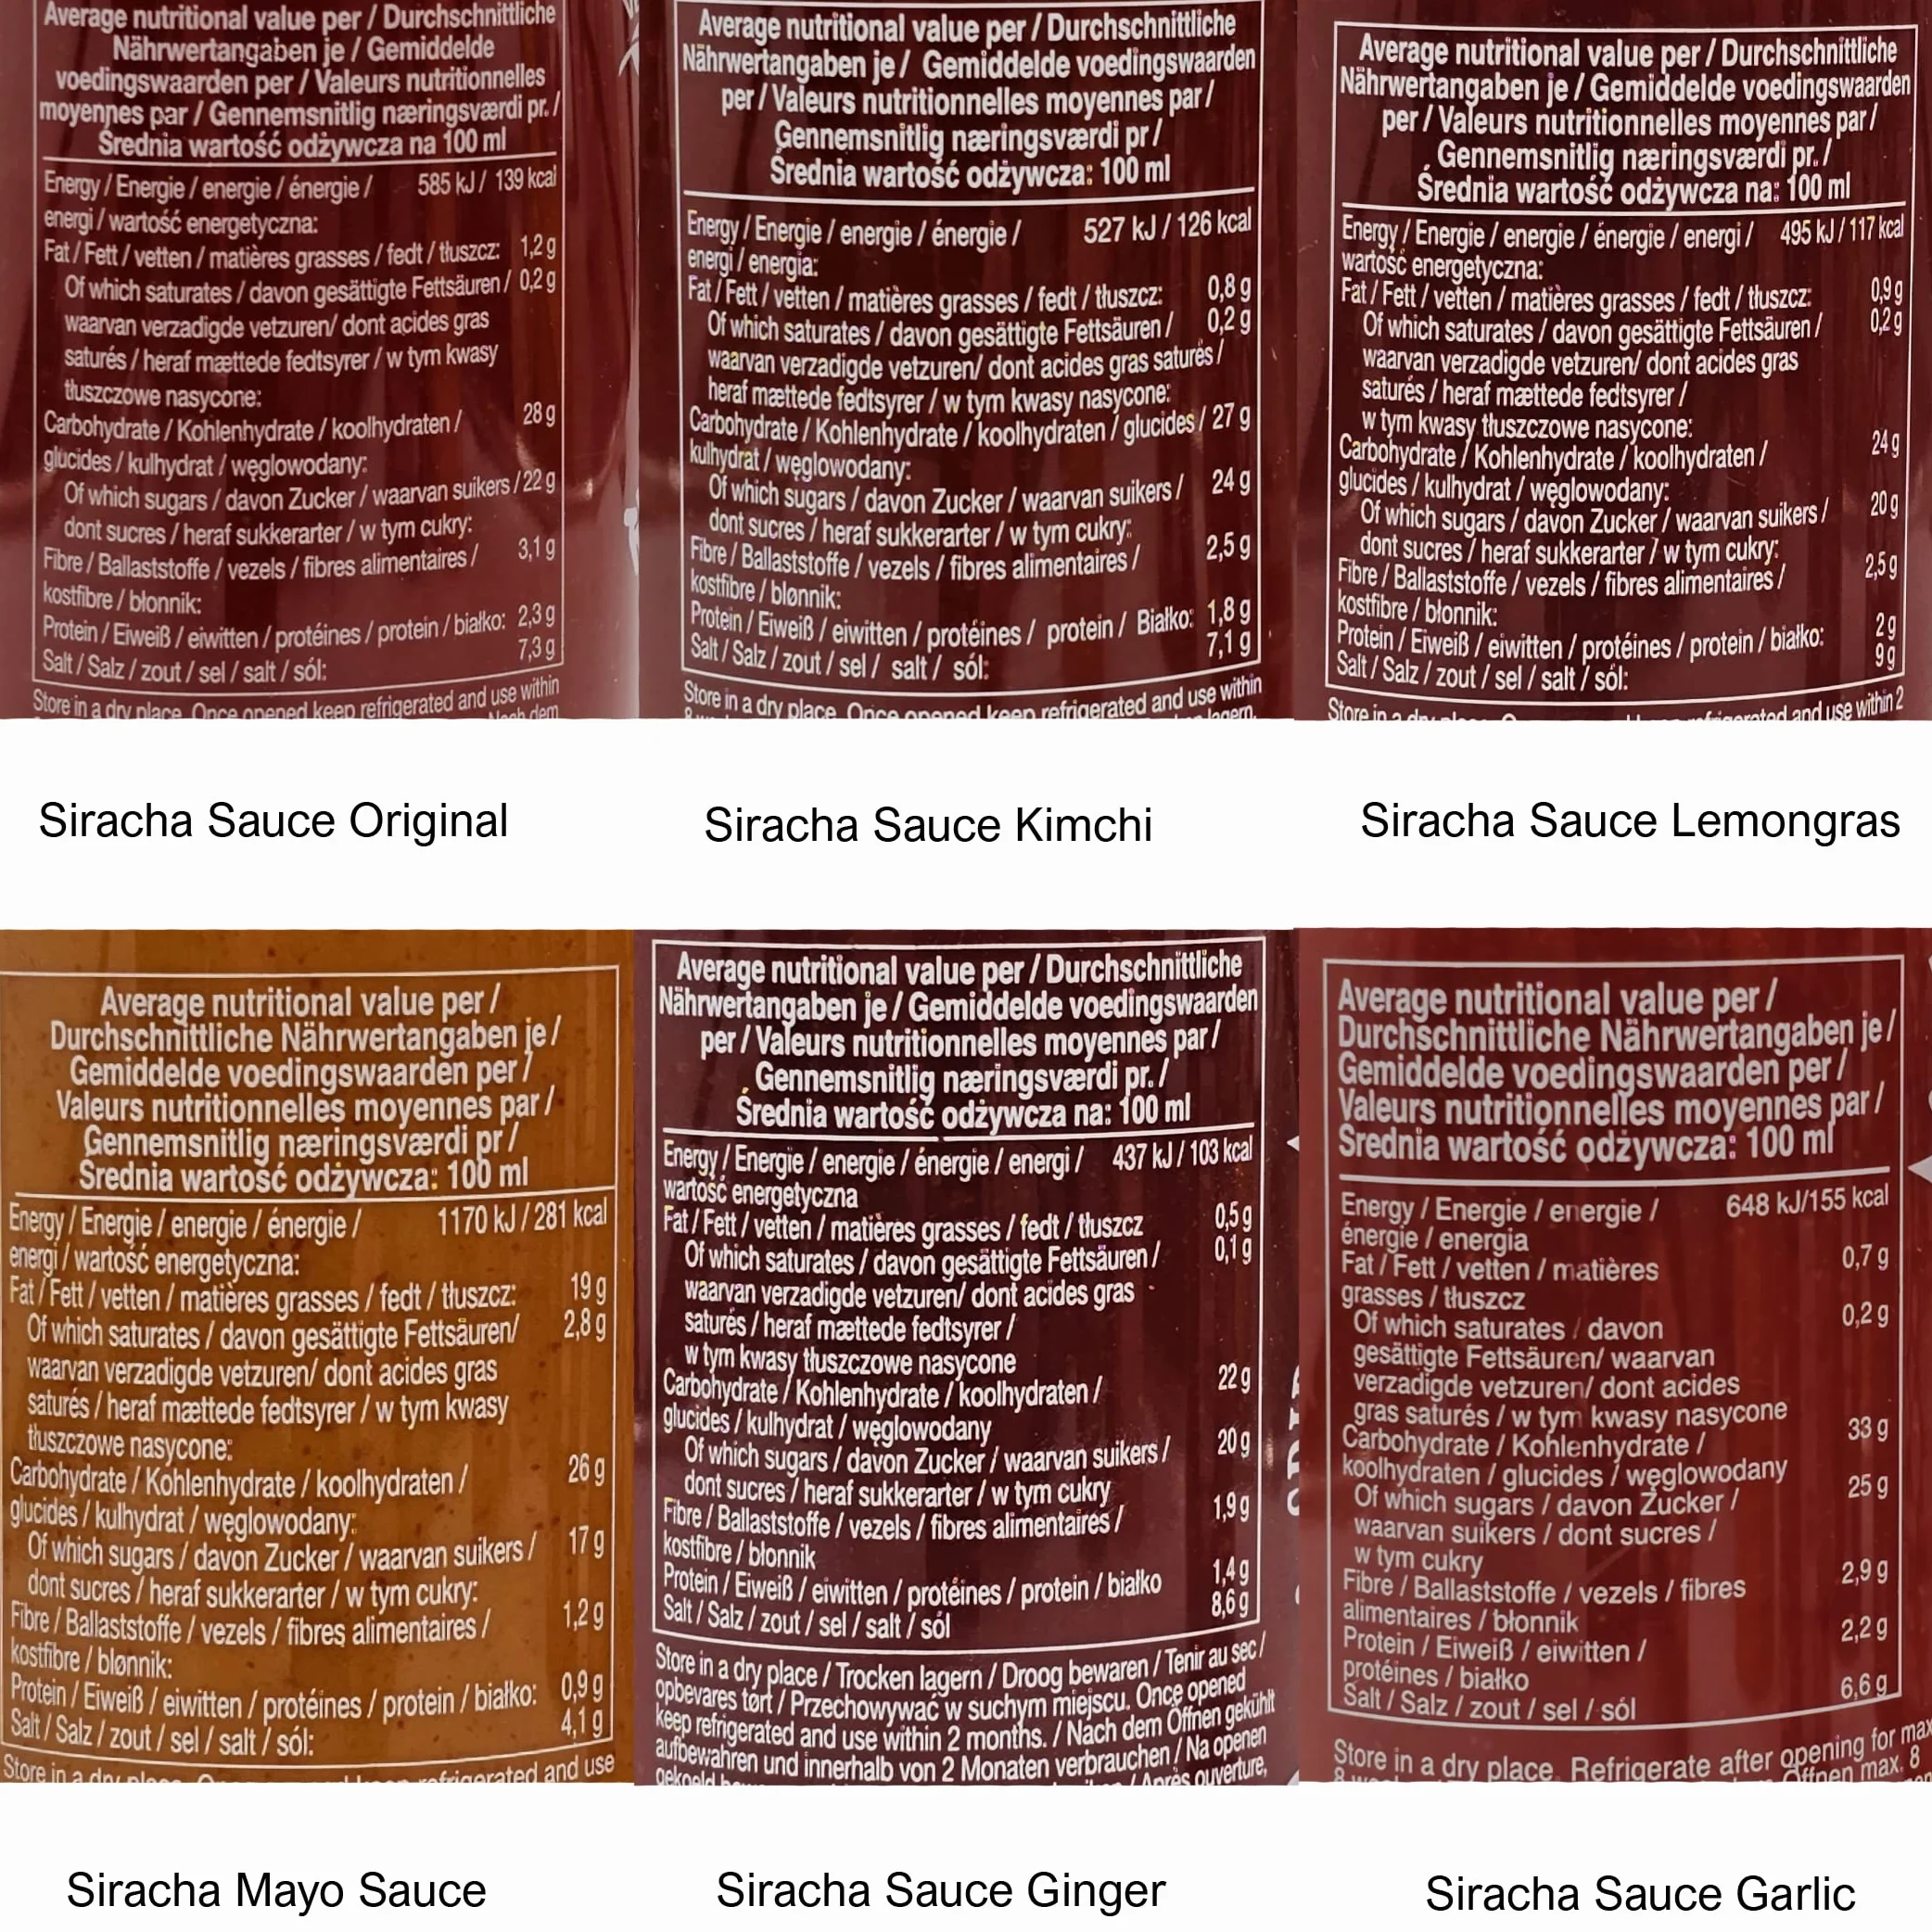 Average nutritional value per / Durchschnittliche
Nährwertangaben je / Gemiddelde
voedingswaarden per / Valeurs nutritionnelles
moyennes par / Gennemsnitlig næringsværdi pr. /
Średnia wartość odżywcza na 100 ml
Energy / Energie / energie / énergie / 585 kJ / 139 kcal
energi / wartość energetyczna:
Fat / Fett / vetten / matières grasses / fedt / tłuszcz: 1,2 g
Of which saturates / davon gesättigte Fettsäuren / 0,2 g
waarvan verzadigde vetzuren/ dont acides gras
saturés / heraf mættede fedtsyrer / w tym kwasy
tłuszczowe nasycone:
Carbohydrate / Kohlenhydrate / koolhydraten / 28 g
glucides / kulhydrat / węglowodany:
Of which sugars / davon Zucker / waarvan suikers / 22 g
dont sucres / heraf sukkerarter / w tym cukry:
Fibre / Ballaststoffe / vezels / fibres alimentaires / 3,1 g
kostfibre / błonnik:
Protein / Eiweiß / eiwitten / protéines / protein / białko: 2,3 g
Salt / Salz / zout / sel / salt / sól: 7,3 g
Store in a dry place. Once opened keep refrigerated and use within
Nach dem
Siracha Sauce Original
Average nutritional value per / Durchschnittliche
Nährwertangaben je / Gemiddelde voedingswaarden
per / Valeurs nutritionnelles moyennes par /
Gennemsnitlig næringsværdi pr /
Średnia wartość odżywcza: 100 ml
Energy / Energie / energie / énergie / 527 kJ / 126 kcal
energi / energia:
Fat / Fett / vetten / matières grasses / fedt / tłuszcz: 0,8 g
Of which saturates / davon gesättigte Fettsäuren / 0,2 g
waarvan verzadigde vetzuren/ dont acides gras saturés /
heraf mættede fedtsyrer / w tym kwasy nasycone:
Carbohydrate / Kohlenhydrate / koolhydraten / glucides / 27 g
kulhydrat / węglowodany:
Of which sugars / davon Zucker / waarvan suikers / 24 g
dont sucres / heraf sukkerarter / w tym cukry:
Fibre / Ballaststoffe / vezels / fibres alimentaires / 2,5 g
kostfibre / blønnik:
Protein / Eiweiß / eiwitten / protéines / protein / Białko: 1,8 g
Salt / Salz / zout / sel / salt / sól: 7,1 g
Store in a dry place. Once opened keep refrigerated and use within
lagern.
Siracha Sauce Kimchi
Average nutritional value per / Durchschnittliche
Nährwertangaben je / Gemiddelde voedingswaarden
per / Valeurs nutritionnelles moyennes par /
Gennemsnitlig næringsværdi pr. /
Średnia wartość odżywcza na: 100 ml
Energy / Energie / energie / énergie / energi / 495 kJ / 117 kcal
wartość energetyczna:
Fat / Fett / vetten / matières grasses / fedt / tłuszcz: 0,9 g
Of which saturates / davon gesättigte Fettsäuren / 0,2 g
waarvan verzadigde vetzuren/ dont acides gras
saturés / heraf mættede fedtsyrer /
w tym kwasy tłuszczowe nasycone:
Carbohydrate / Kohlenhydrate / koolhydraten / 24 g
glucides / kulhydrat / węglowodany:
Of which sugars / davon Zucker / waarvan suikers / 20 g
dont sucres / heraf sukkerarter / w tym cukry:
Fibre / Ballaststoffe / vezels / fibres alimentaires / 2,5 g
kostfibre / błonnik:
Protein / Eiweiß / eiwitten / protéines / protein / białko: 2 g
Salt / Salz / zout / sel / salt / sól: 9 g
Store in a dry refrigerated and use within 2
Siracha Sauce Lemongras
Average nutritional value per /
Durchschnittliche Nährwertangaben je /
Gemiddelde voedingswaarden per /
Valeurs nutritionnelles moyennes par /
Gennemsnitlig næringsværdi pr /
Średnia wartość odżywcza: 100 ml
Energy / Energie / energie / énergie / 1170 kJ / 281 kcal
energi / wartość energetyczna:
Fat / Fett / vetten / matières grasses / fedt / tłuszcz: 19 g
Of which saturates / davon gesättigte Fettsäuren/ 2,8 g
waarvan verzadigde vetzuren/ dont acides gras
saturés / heraf mættede fedtsyrer / w tym kwasy
tłuszczowe nasycone:
Carbohydrate / Kohlenhydrate / koolhydraten / 26 g
glucides / kulhydrat / węglowodany:
Of which sugars / davon Zucker / waarvan suikers / 17 g
dont sucres / heraf sukkerarter / w tym cukry:
Fibre / Ballaststoffe / vezels / fibres alimentaires / 1,2 g
kostfibre / blønnik:
Protein / Eiweiß / eiwitten / protéines / protein / białko: 0,9 g
Salt / Salz / zout / sel / salt / sól: 4,1 g
Store in a dry place refrigerated and use
Siracha Mayo Sauce
Average nutritional value per / Durchschnittliche
Nährwertangaben je / Gemiddelde voedingswaarden
per / Valeurs nutritionnelles moyennes par /
Gennemsnitlig næringsværdi pr. /
Średnia wartość odżywcza na: 100 ml
Energy / Energie / energie / énergie / energi / 437 kJ / 103 kcal
wartość energetyczna
Fat / Fett / vetten / matières grasses / fedt / tłuszcz 0,5 g
Of which saturates / davon gesättigte Fettsäuren / 0,1 g
waarvan verzadigde vetzuren/ dont acides gras
saturés / heraf mættede fedtsyrer /
w tym kwasy tłuszczowe nasycone
Carbohydrate / Kohlenhydrate / koolhydraten / 22 g
glucides / kulhydrat / węglowodany
Of which sugars / davon Zucker / waarvan suikers / 20 g
dont sucres / heraf sukkerarter / w tym cukry
Fibre / Ballaststoffe / vezels / fibres alimentaires / 1,9 g
kostfibre / błonnik
Protein / Eiweiß / eiwitten / protéines / protein / białko 1,4 g
Salt / Salz / zout / sel / salt / sól 8,6 g
Store in a dry place / Trocken lagern / Droog bewaren / Tenir au sec /
opbevares tørt / Przechowywać w suchym miejscu. Once opened
keep refrigerated and use within 2 months. / Nach dem Öffnen gekühlt
aufbewahren und innerhalb von 2 Monaten verbrauchen / Na openen
gekoeld / Après ouverture,
Siracha Sauce Ginger
Average nutritional value per /
Durchschnittliche Nährwertangaben je /
Gemiddelde voedingswaarden per /
Valeurs nutritionnelles moyennes par /
Średnia wartość odżywcza: 100 ml
Energy / Energie / energie / 648 kJ/155 kcal
énergie / energia
Fat / Fett / vetten / matières 0,7 g
grasses / tłuszcz
Of which saturates / davon 0,2 g
gesättigte Fettsäuren/ waarvan
verzadigde vetzuren/ dont acides
gras saturés / w tym kwasy nasycone
Carbohydrate / Kohlenhydrate / 33 g
koolhydraten / glucides / węglowodany
Of which sugars / davon Zucker / 25 g
waarvan suikers / dont sucres /
w tym cukry
Fibre / Ballaststoffe / vezels / fibres 2,9 g
alimentaires / błonnik
Protein / Eiweiß / eiwitten / 2,2 g
protéines / białko
Salt / Salz / zout / sel / sól 6,6 g
Store in a dry place. Refrigerate after opening for max
Öffnen max. 8
Siracha Sauce Garlic